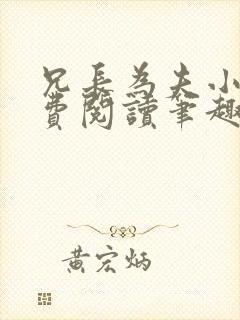 兄長為夫小
費閱讀筆趣
黃宏炳